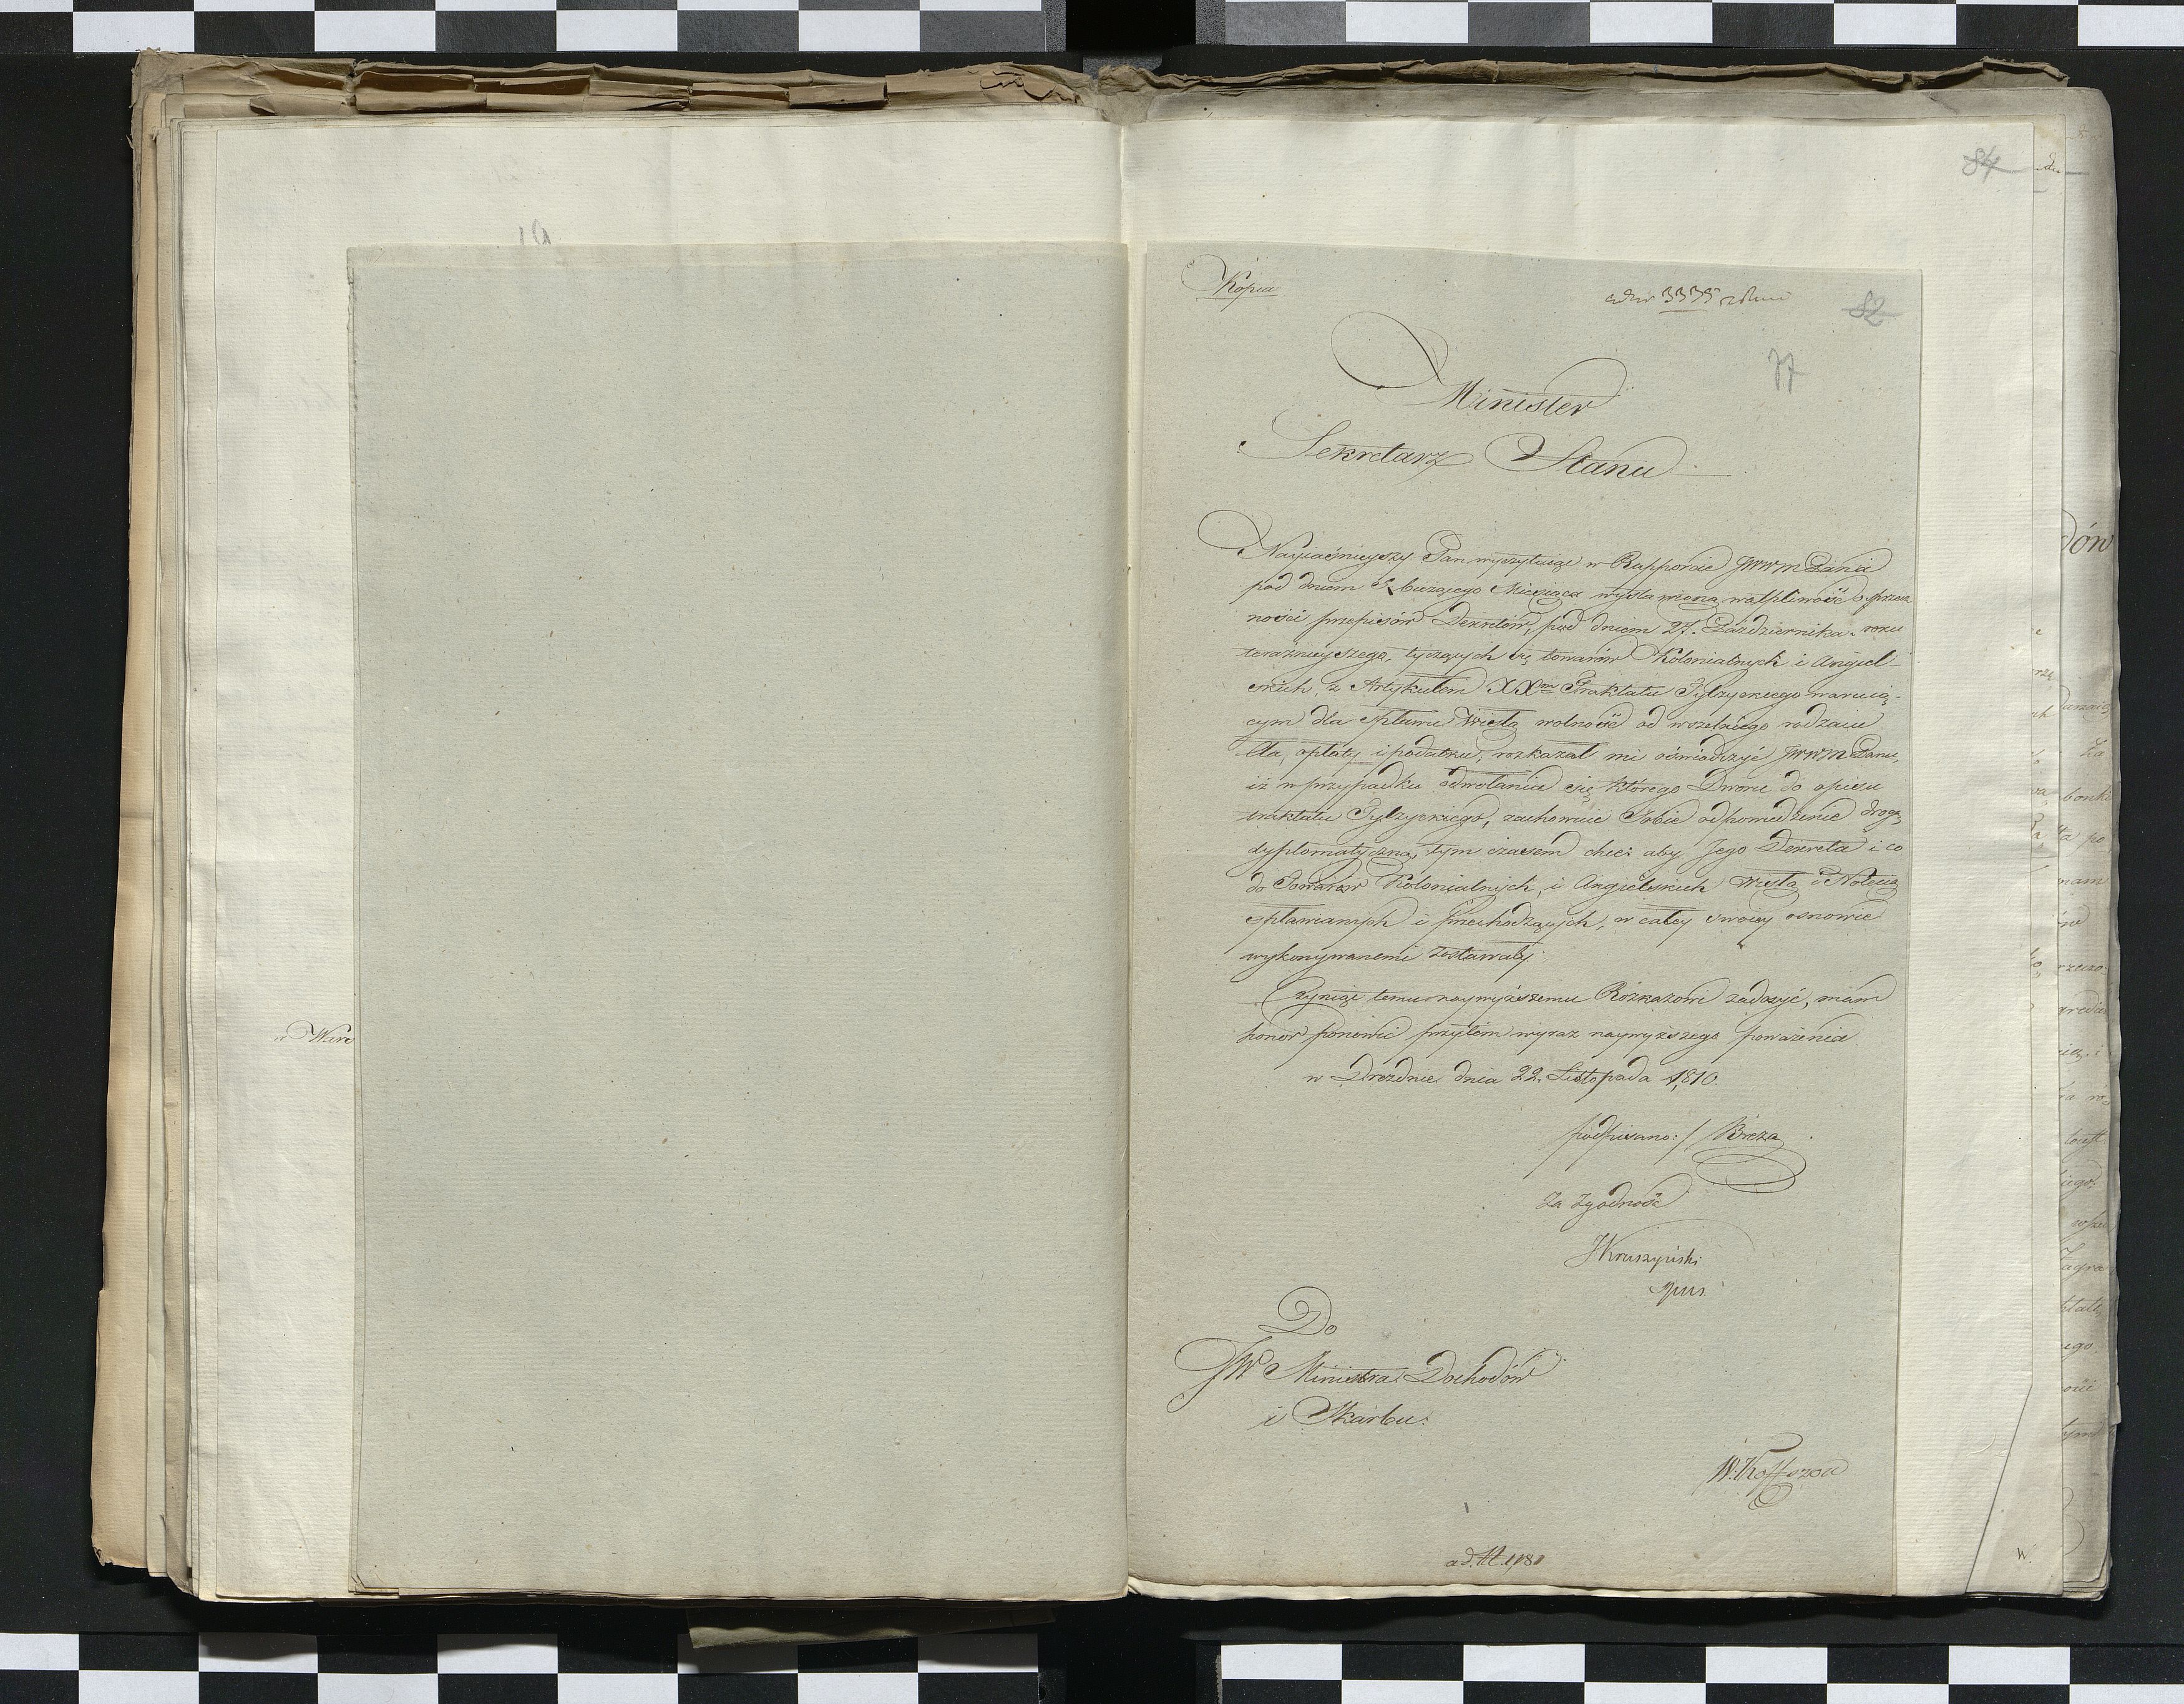 84
Kopia
ad Nr 3335
82
77
Minister
Sekretarz Stanu
Nayiaśnieyszy Pan wyczytuiąc w Rapporcie JWWM Pana
pod dniem bieżącego Miesiąca wystawioną wątpliwość o sprzecz
ności przepisów Dekretów, pod dniem 27. Października roku
teraznieyszego, tyczących się towarów Kolonialnych i Angiel-
skich, z Artykułem XXm Traktatu Tylżyckiego waruią-
cym dla spławu Wisłą wolność od wszelkiego rodzaiu
Cła, opłaty i podatku, rozkazał mi oświadczyć JWWM Panu,
iż w przypadku odwołania się którego Dworu do opisu
traktatu Tylżyckiego, zachowuie Sobie odpowiedzenie drogą
dyplomatyczną, tym czasem chce: aby Jego Dekreta i co
do Towarów Kolonialnych, i Angielskich Wisłą i Notecią
spławianych i przechodzących, w całey swoiey osnowie
wykonywanemi zostawały.
Czyniąc temu naywyższemu Rozkazowi zadosyć, mam
honor ponowić przytém wyraz naywyższego poważenia
w Dreznie dnia 22. Listopada 1810.
podpisano: / Breza
Za Zgodność
JKruszyński
Do
JW Ministra Dochodów
i Skarbu.
ad. N. 1181
a Wars
dów